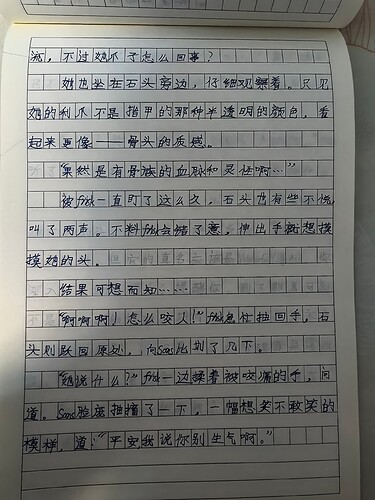 流，不过她爪子怎么回事？
她也坐在石头旁边，仔细观察着。只见
她的利爪不是指甲的那种半透明的颜色，看
起来更像——骨头的质感。
“果然是有骨族的血脉和灵性啊…”
被frisk一直盯了这么久，石头也有些不悦，
叫了两声。不料frisk会错了意，伸出手就想摸
摸她的头。
结果可想而知……
“啊啊啊！怎么咬人！”frisk急忙抽回手，石
头则跃回原处，向Sans比划了几下。
“她说什么？”frisk一边揉着被咬痛的手，问
道。Sans脸庞抽搐了一下，一幅想笑不敢笑的
模样，道：“平安我说你别生气啊。”